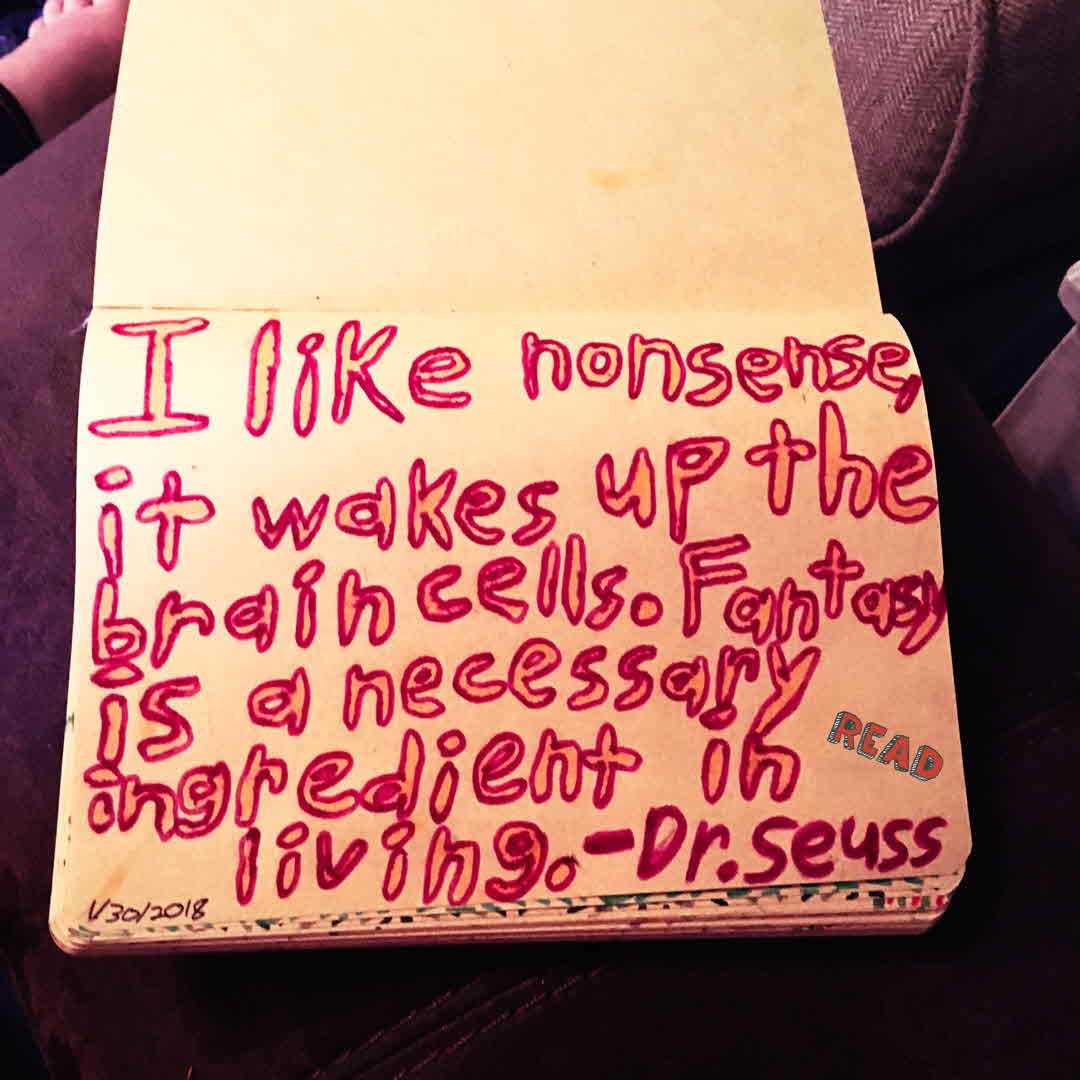 I like nonsense,
it wakes up the
brain cells. Fantasy
is a necessary
READ
ingredient in
living. -Dr. Seuss
1/30/2018